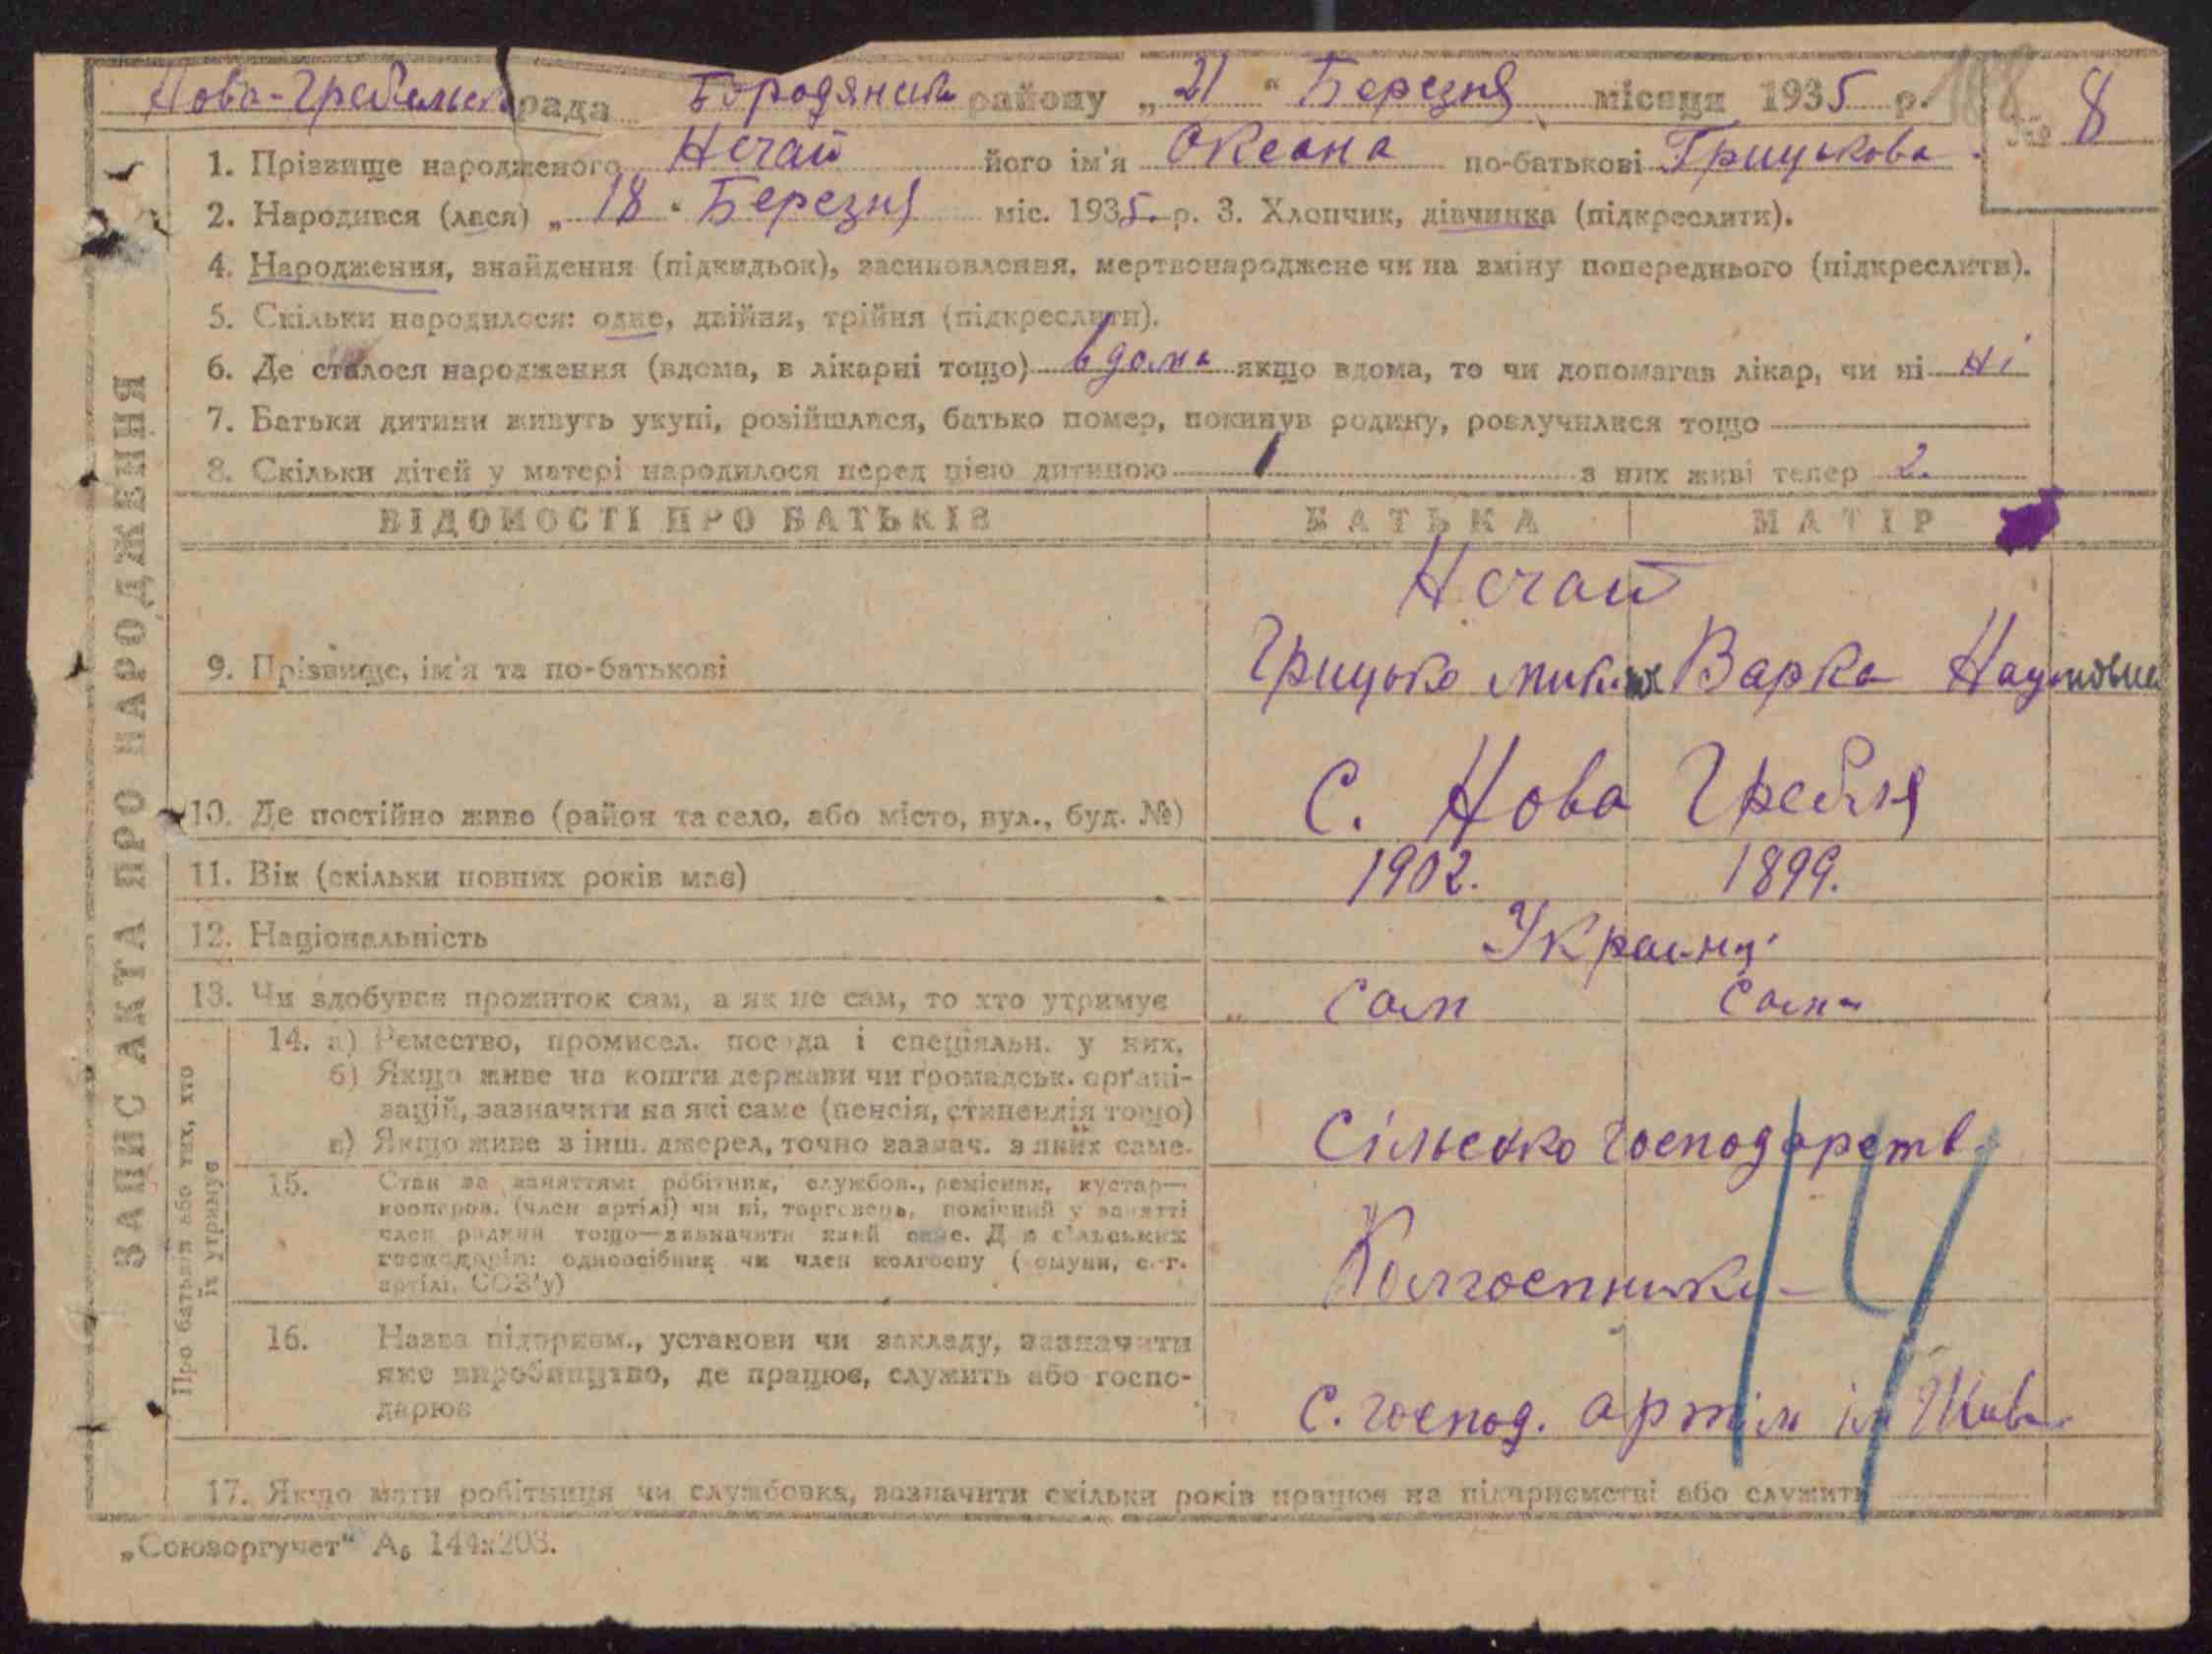 Нова-Гребельск рада Бородянськ району „21“ Березня місяця 1935 р. № 8
1. Прізвище народженого Нечай його ім'я Океана по-батькові Грицькова
2. Народився (лася) „18“ Березня міс. 1935. р. 3. Хлопчик, дівчинка (підкреслити).
4. Народження, знайдення (підкидьок), засиновлення, мертвонароджене чи на зміну попереднього (підкреслити).
5. Скільки народилося: одне, двійня, трійня (підкреслити).
6. Де сталося народження (вдома, в лікарні тощо) вдома якщо вдома, то чи допомагав лікар, чи ні Ні
7. Батьки дитини живуть укупі, розійшлися, батько помер, покинув родину, розлучилися тощо
8. Скільки дітей у матері народилося перед цією дитиною 1 з них живі тепер 2.
ЗАПИС АКТА ПРО НАРОДЖЕННЯ
ВІДОМОСТІ ПРО БАТЬКІВ БАТЬКА МАТІР
Нечай
9. Прізвище, ім'я та по-батькові Грицько Варка Наумовна
10. Де постійно живе (район та село, або місто, вул., буд. №) С. Нова Гребля
11. Вік (скільки повних років має) 1902. 1899.
12. Національність Українці
13. Чи здобуває прожиток сам, а як не сам, то хто утримує Сам Сама
Про батьків або тих, хто їх утримує
14. а) Ремество, промисел, посада і спеціяльн. у них.
б) Якщо живе на кошти держави чи громадськ. орґані-
зацій, зазначити на які саме (пенсія, стипендія тощо)
в) Якщо живе з інш. джерел, точно зазнач. з яких саме. Сільсько господарств
15. Стан за заняттям: робітник, службов., ремісник, кустар—
коопером. (член артілі) чи ні, торговець, помічний у занятті
член родини тощо—зазначити який саме. Для сільських
господарів: одноосібник чи член колгоспу (комуни, с.-г.
артілі, СОЗ'у) Колгоспники
16. Назва підприєм., установи чи закладу, зазначити
яке виробництво, де працює, служить або госпо-
дарює С. господ. артіль ім
14
17. Якщо мати робітниця чи службовка, зазначити скільки років працює на підприємстві або служить
„Союзоргучет“ А₅ 144х203.